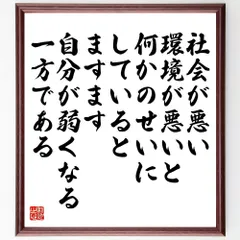 社会が悪い
環境が悪いと
何かのせいに
していると
ますます
自分が弱くなる
一方である